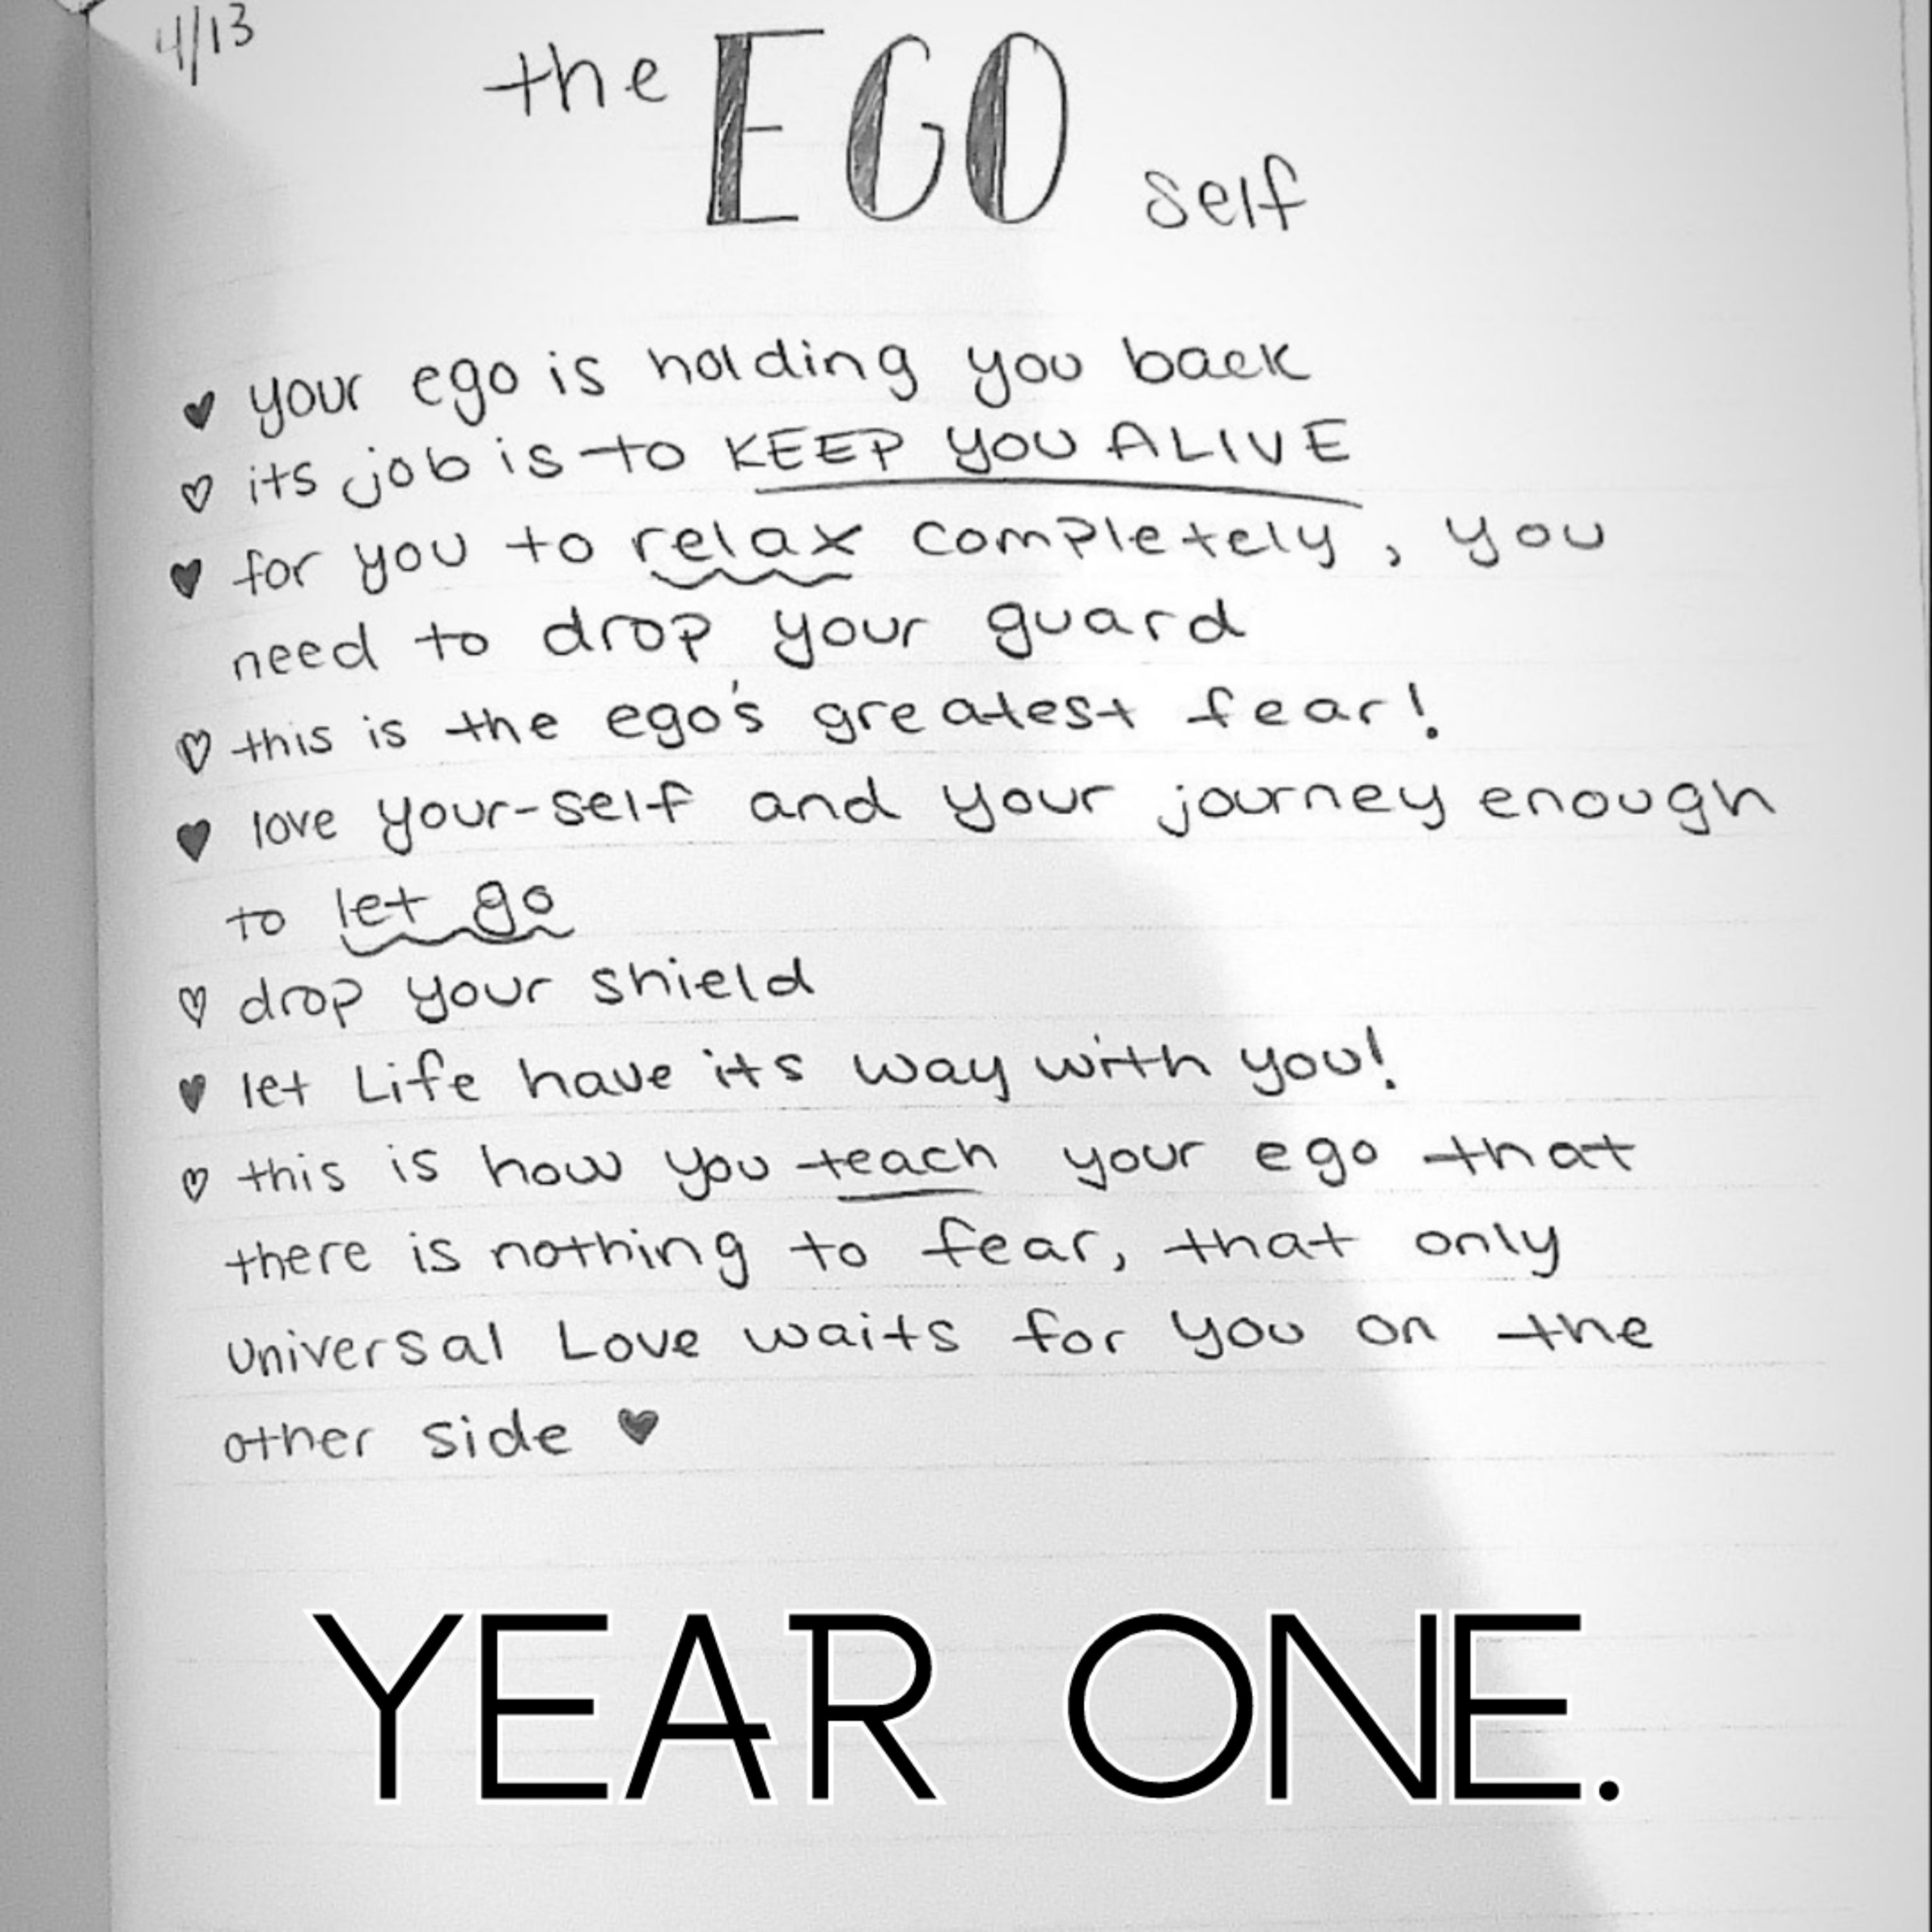 4/13
the EGO self
♥ your ego is holding you back
♡ its job is to KEEP YOU ALIVE
♥ for you to relax completely, you
need to drop your guard
♡ this is the ego's greatest fear!
♥ love your-self and your journey enough
to let go
♡ drop your shield
♥ let Life have its way with you!
♡ this is how you teach your ego that
there is nothing to fear, that only
Universal Love waits for you on the
other side ♥
YEAR ONE.